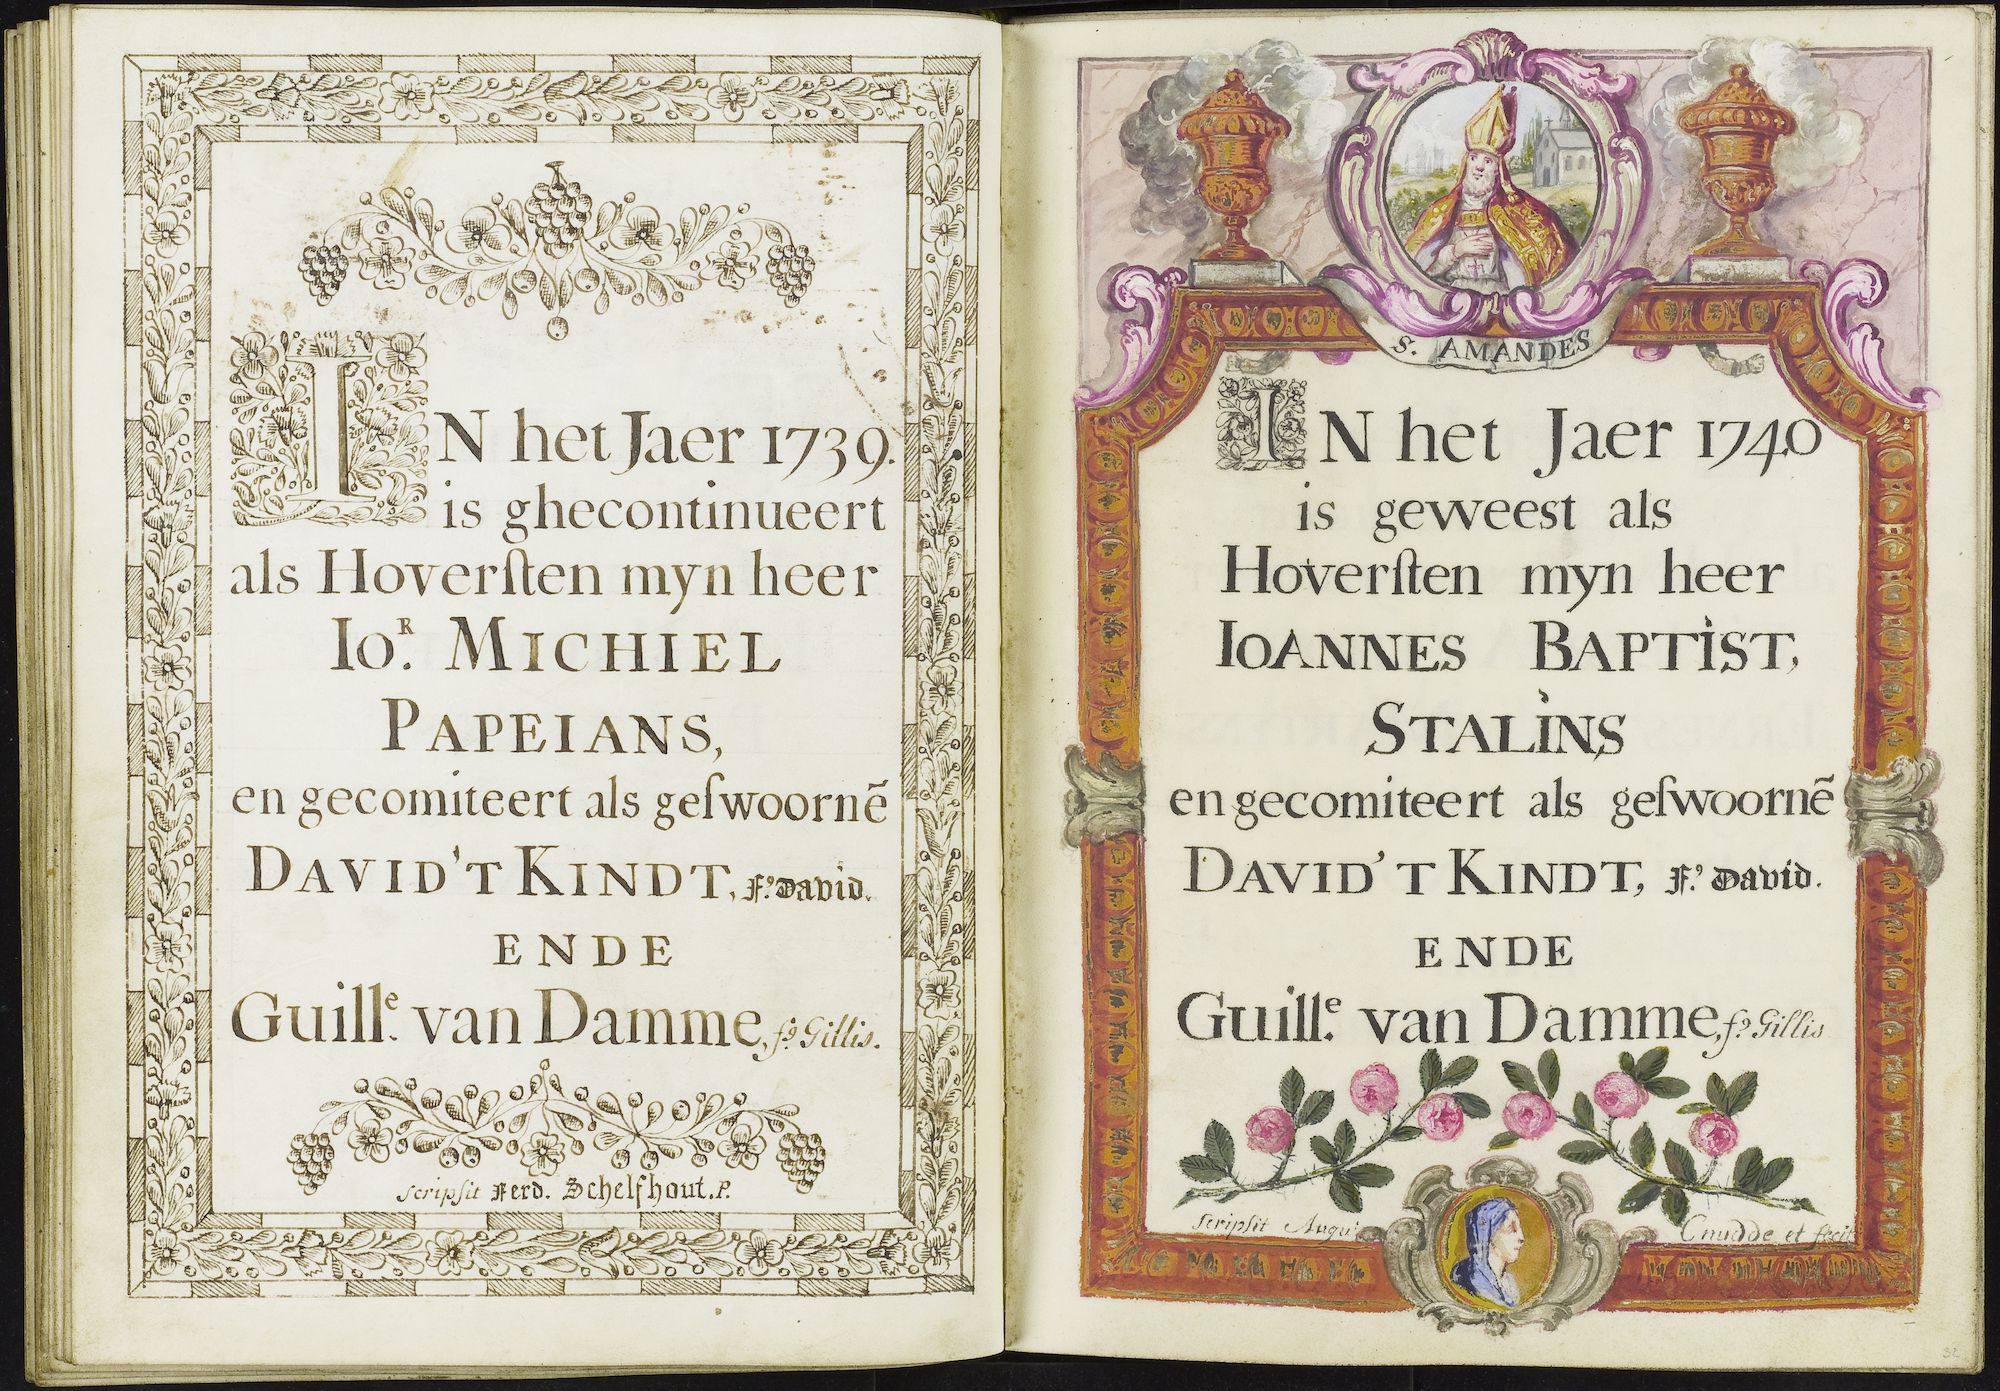 IN het Jaer 1739.
is ghecontinueert
als Hoverſten myn heer
IOR. MICHIEL
PAPEIANS,
en gecomiteert als geſwoornē
DAVID 'T KINDT, F.° David.
ENDE
Guille. van Damme, f.° Gillis.
scripsit Ferd. Schelfhout. P.
S. AMANDES
IN het Jaer 1740
is geweest als
Hoverſten myn heer
IOANNES BAPTIST,
STALINS
en gecomiteert als geſwoornē
DAVID 'T KINDT, F.° David.
ENDE
Guille. van Damme, f.° Gillis
scripsit Augu: Cnudde et fecit
32